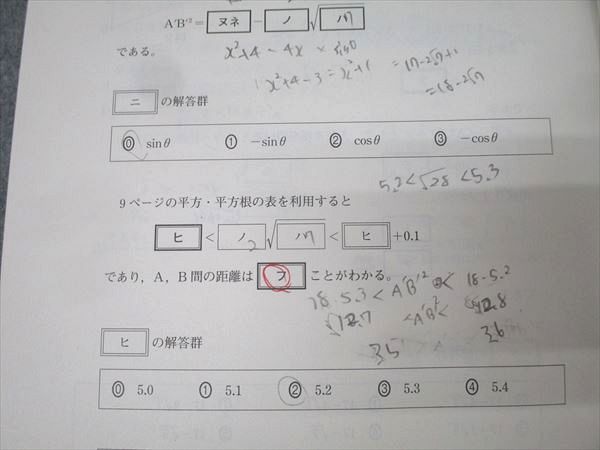 A'B'²= ヌネ − ノ √ハ7
である。
x²+4-4x
x²+4-3=x²+1
=17-2√17+1
=18-2√7
ニ の解答群
⓪ sinθ ① −sinθ ② cosθ ③ −cosθ
5.2<√28<5.3
9ページの平方・平方根の表を利用すると
ヒ < ノ2 √ハ7 < ヒ +0.1
であり，A，B間の距離は フ ことがわかる。
18-5.3 < A'B'² < 18-5.2
12.7 <A'B'²< 12.8
35 36
ヒ の解答群
⓪ 5.0 ① 5.1 ② 5.2 ③ 5.3 ④ 5.4